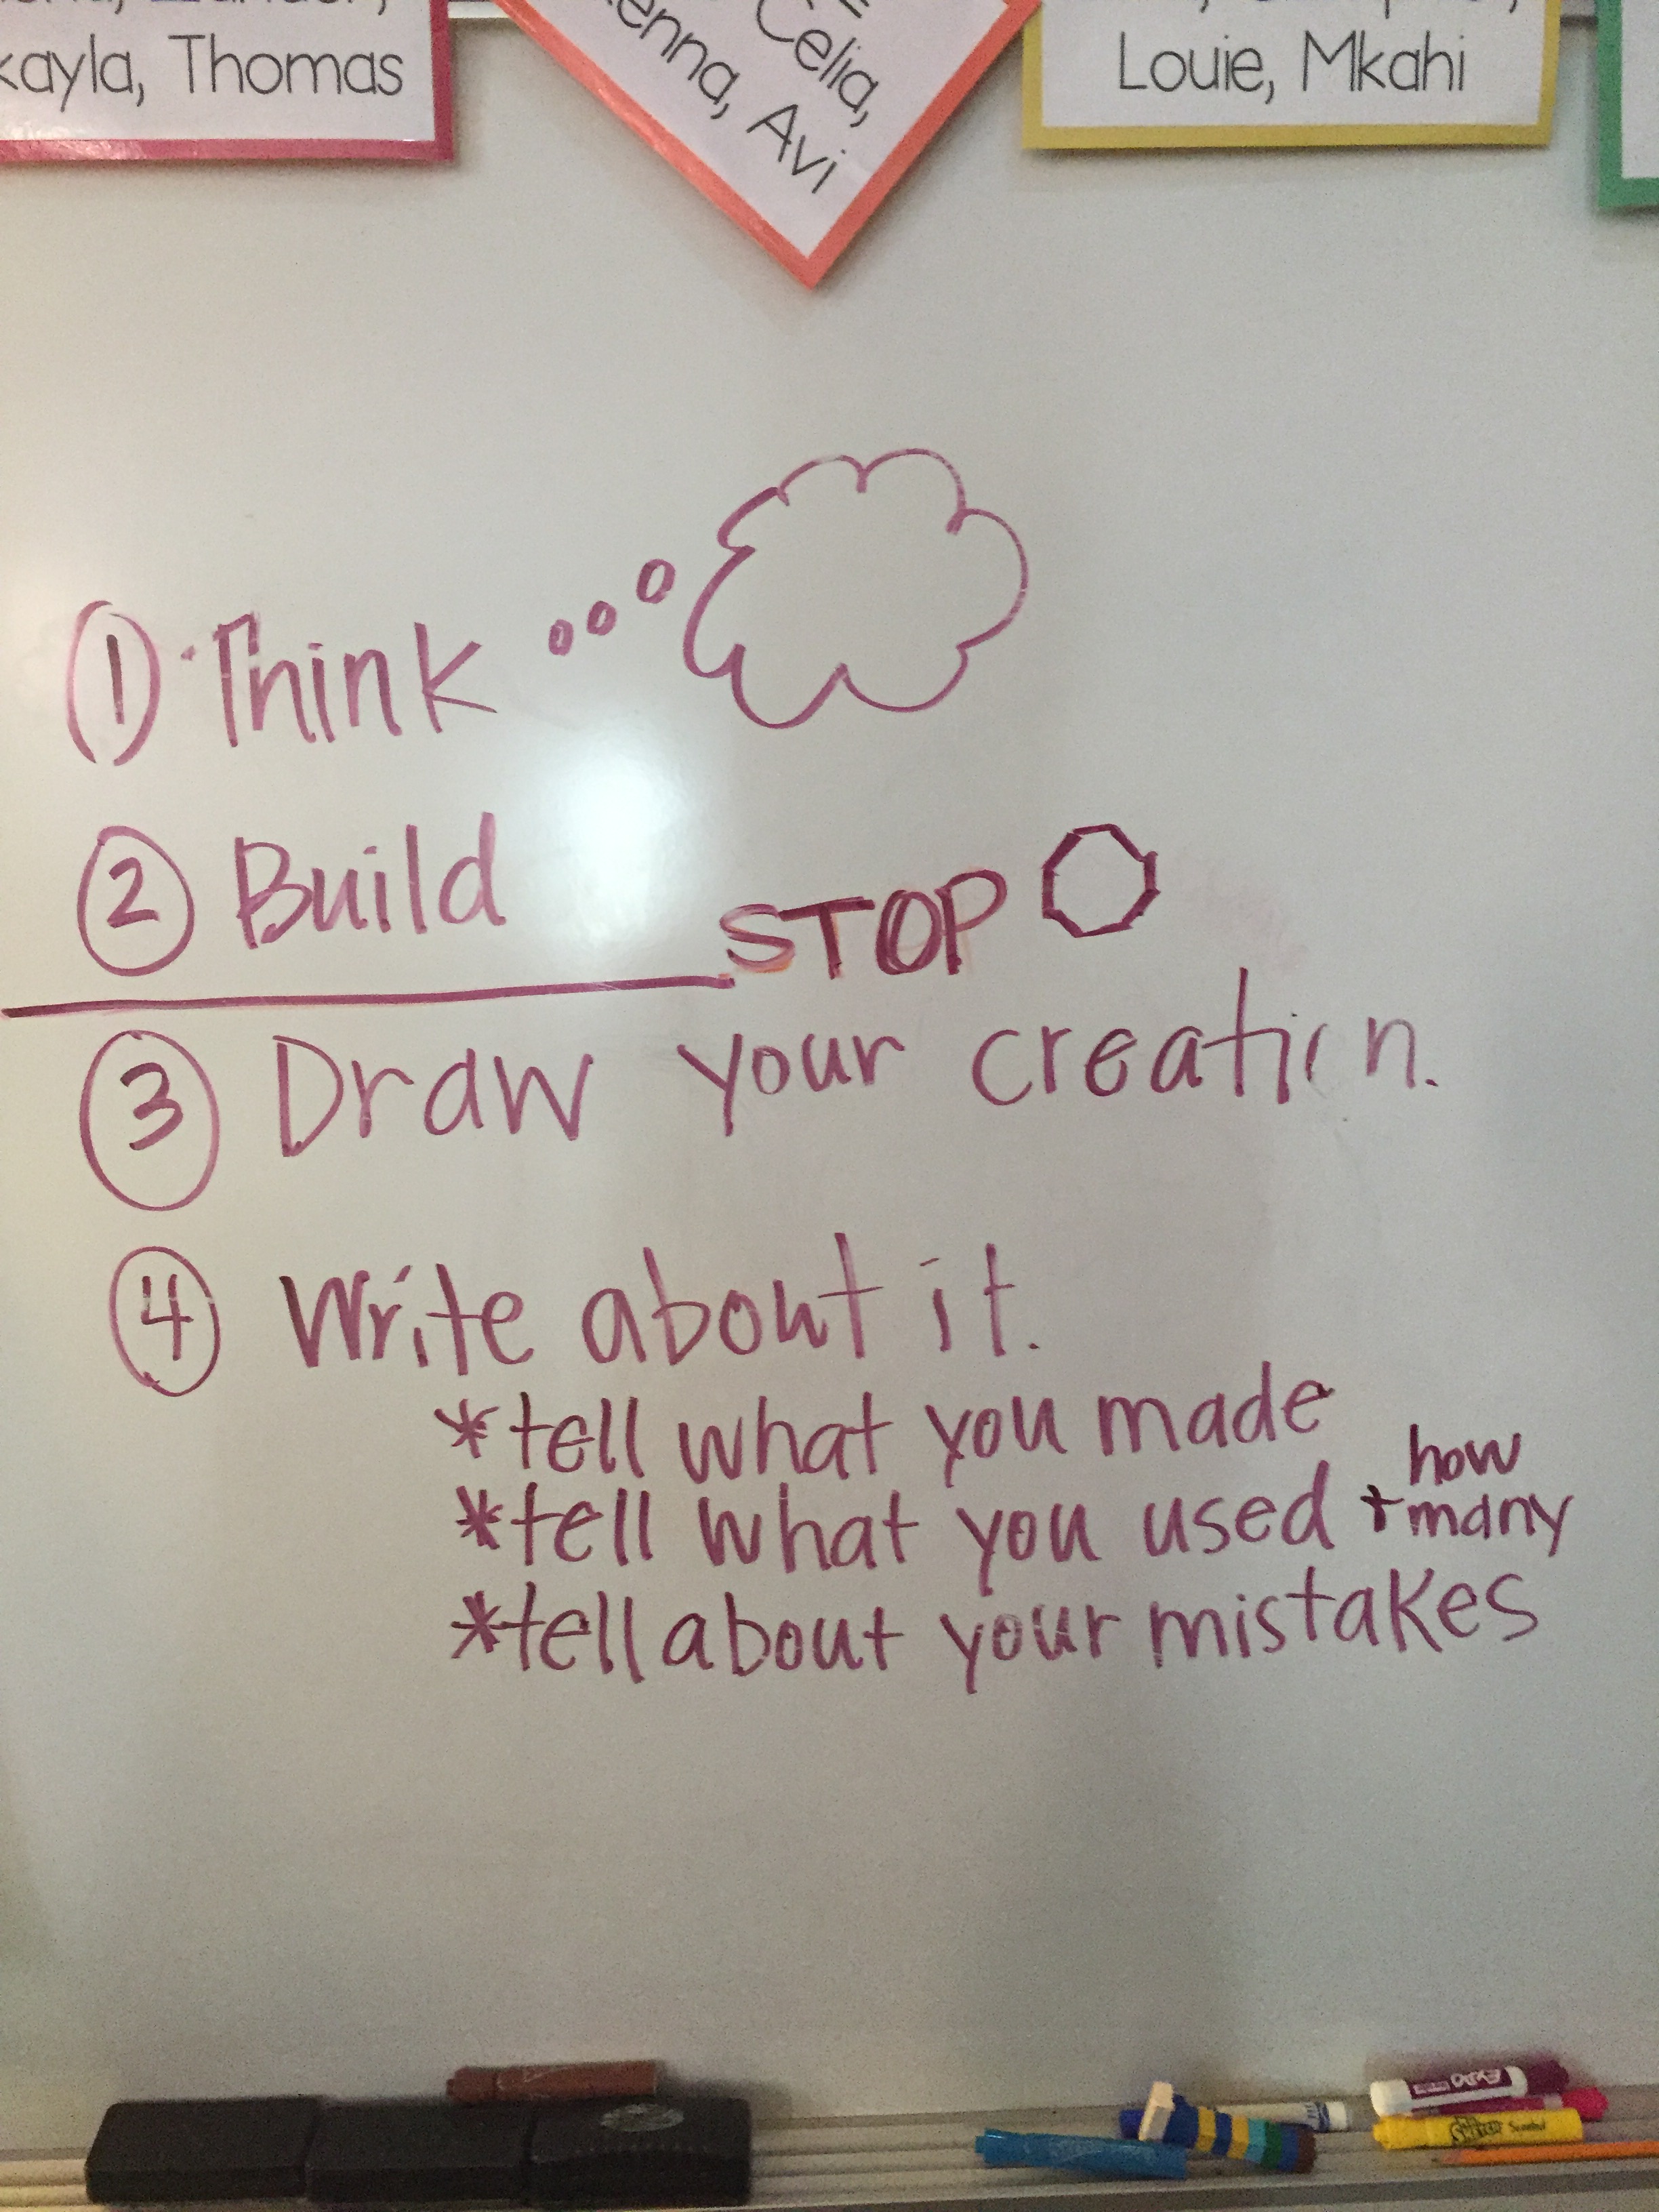 Thomas
Celia,
Avi
Louie, Mkahi
① Think
② Build
STOP
③ Draw your creation.
④ Write about it.
*tell what you made
*tell what you used + how many
*tell about your mistakes
EXPO